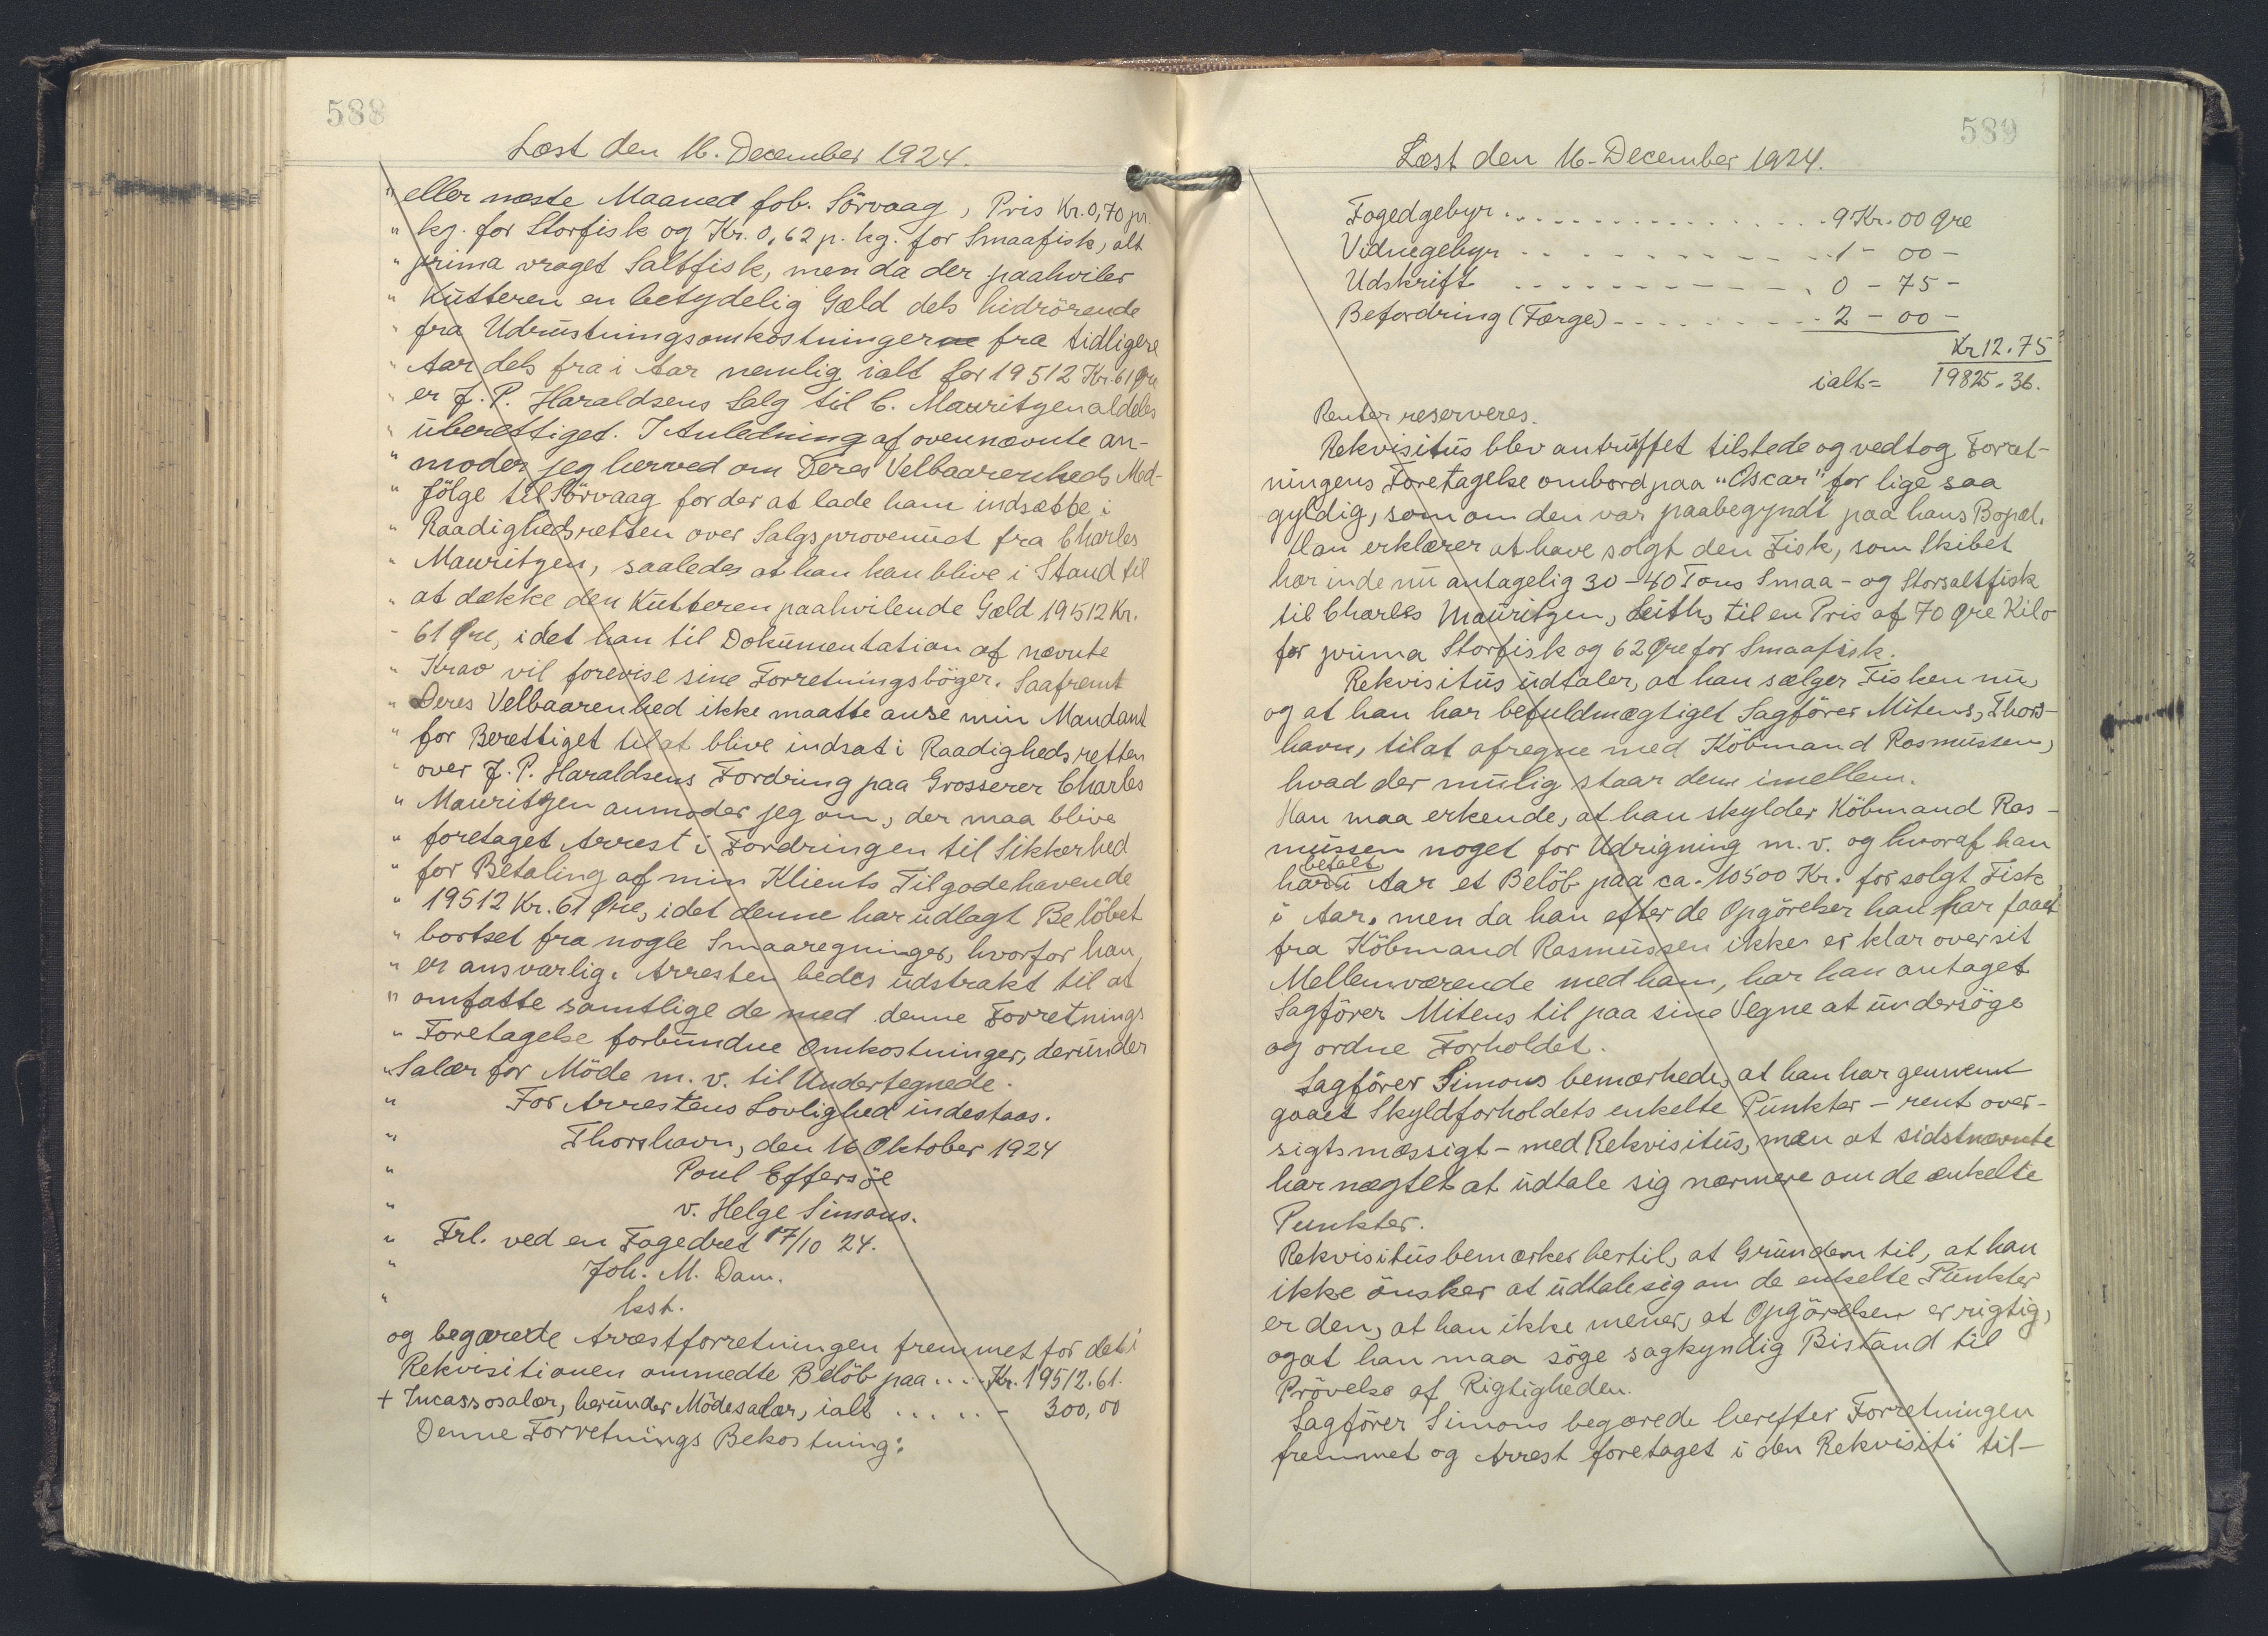 588
Læst den 16. December 1924.
" eller næste Maaned fob. Sörvaag, Pris Kr. 0,70 pr.
" kg. for Storfisk og Kr. 0,62 p. kg. for Smaafisk, alt
" prima vraget Saltfisk, men da der paahviler
" Kutteren en betydelig Gæld dels hidrörende
" fra Udrustningsomkostninger fra tidligere
" Aar dels fra i Aar nemlig ialt for 19512 Kr. 61 Øre
" er J. P. Haraldsens Salg til C. Mauritzen aldeles
" uberettiget. I Anledning af ovennævnte an-
" moder jeg herved om Deres Velbaarenheds Med-
" fölge til Sörvaag for der at lade ham indsætte i
" Raadighedsretten over Salgsprovenuet fra Charles
" Mauritzen, saaledes at han kan blive i Stand til
" at dække den Kutteren paahvilende Gæld 19512 Kr.
" 61 Øre, idet han til Dokumentation af nævnte
" Krav vil forevise sine Forretningsböger. Saafremt
" Deres Velbaarenhed ikke maatte anse min Mandant
" for Berettiget til at blive indsat i Raadighedsretten
" over J. P. Haraldsens Fordring paa Grosserer Charles
" Mauritzen anmoder jeg om, der maa blive
" foretaget Arrest i Fordringen til Sikkerhed
" for Betaling af min Klients Tilgodehavende
" 19512 Kr. 61 Øre, idet denne har udlagt Belöbet
" bortset fra nogle Smaaregninger, hvorfor han
" er ansvarlig. Arresten bedes udstrakt til at
" omfatte samtlige de med denne Forretnings
" Foretagelse forbundne Omkostninger, derunder
" Salær for Möde m. v. til Undertegnede.
" For Arrestens Lovlighed indestaas.
" Thorshavn, den 16 Oktober 1924
" Poul Effersöe
" v. Helge Simons.
" Frl. ved en Fogedret 17/10 24.
" Joh. M. Dam.
" kst.
og begærede Arrestforretningen fremmet for det i
Rekvisitionen ommedte Belöb paa .... Kr. 19512.61.
+ Incassosalær, herunder Mödesalær, ialt ..... - 300,00
Denne Forretnings Bekostning:
589
Læst den 16. December 1924.
Fogedgebyr .............. 9 Kr. 00 Øre
Vidnegebyr ............ 1 - 00 -
Udskrift ............ 0 - 75 -
Befordring (Færge) ......... 2 - 00 -
Kr 12.75
ialt = 19825.36.
Renter reserveres.
Rekvisitus blev antruffet tilstede og vedtog Forret-
ningens Foretagelse ombord paa "Oscar" for lige saa
gyldig, som om den var paabegyndt paa hans Bopæl.
Han erklærer at have solgt den Fisk, som Skibet
har inde nu antagelig 30-40 Tons Smaa- og Storsaltfisk
til Charles Mauritzen, Leith, til en Pris af 70 Øre Kilo
for prima Storfisk og 62 Øre for Smaafisk.
Rekvisitus udtaler, at han sælger Fisken nu,
og at han har befuldmægtiget Sagförer Mitens, Thors-
havn, til at afregne med Köbmand Rasmussen,
hvad der mulig staar dem imellem.
Han maa erkende, at han skylder Köbmand Ras-
mussen noget for Udrigning m. v. og hvoraf han
betalt
har i Aar et Belöb paa ca. 10500 Kr. for solgt Fisk
i Aar, men da han efter de Opgörelser han har faaet
fra Köbmand Rasmussen ikke er klar over sit
Mellemværende med ham, har han antaget
Sagförer Mitens til paa sine Vegne at undersöge
og ordne Forholdet.
Sagförer Simons bemærkede, at han har gennem
gaaet Skyldforholdets enkelte Punkter - rent over-
sigtsmæssigt - med Rekvisitus, men at sidstnævnte
har nægtet at udtale sig nærmere om de enkelte
Punkter.
Rekvisitus bemærker hertil, at Grunden til, at han
ikke önsker at udtale sig om de enkelte Punkter
er den, at han ikke mener, at Opgörelsen er rigtig,
og at han maa söge sagkyndig Bistand til
Prövelse af Rigtigheden.
Sagförer Simons begærede herefter Forretningen
fremmet og Arrest foretaget i den Rekvisiti til-